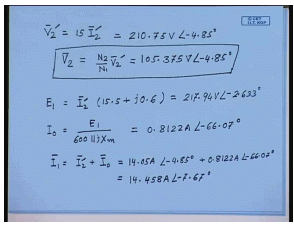 © CET
I.I.T. KGP
V̄₂' = 15 Ī₂' = 210.75 V∠-4.85°
V̄₂ = N₂/N₁ V̄₂' = 105.375 V∠-4.85°
E₁ = Ī₂' (15.5 + j0.6) = 217.94V∠-2.633°
I₀ = E₁/600 || jXₘ = 0.8122A∠-66.07°
Ī₁ = Ī₂' + Ī₀ = 14.05A∠-4.85° + 0.8122A∠-66.07°
= 14.458A∠-7.67°